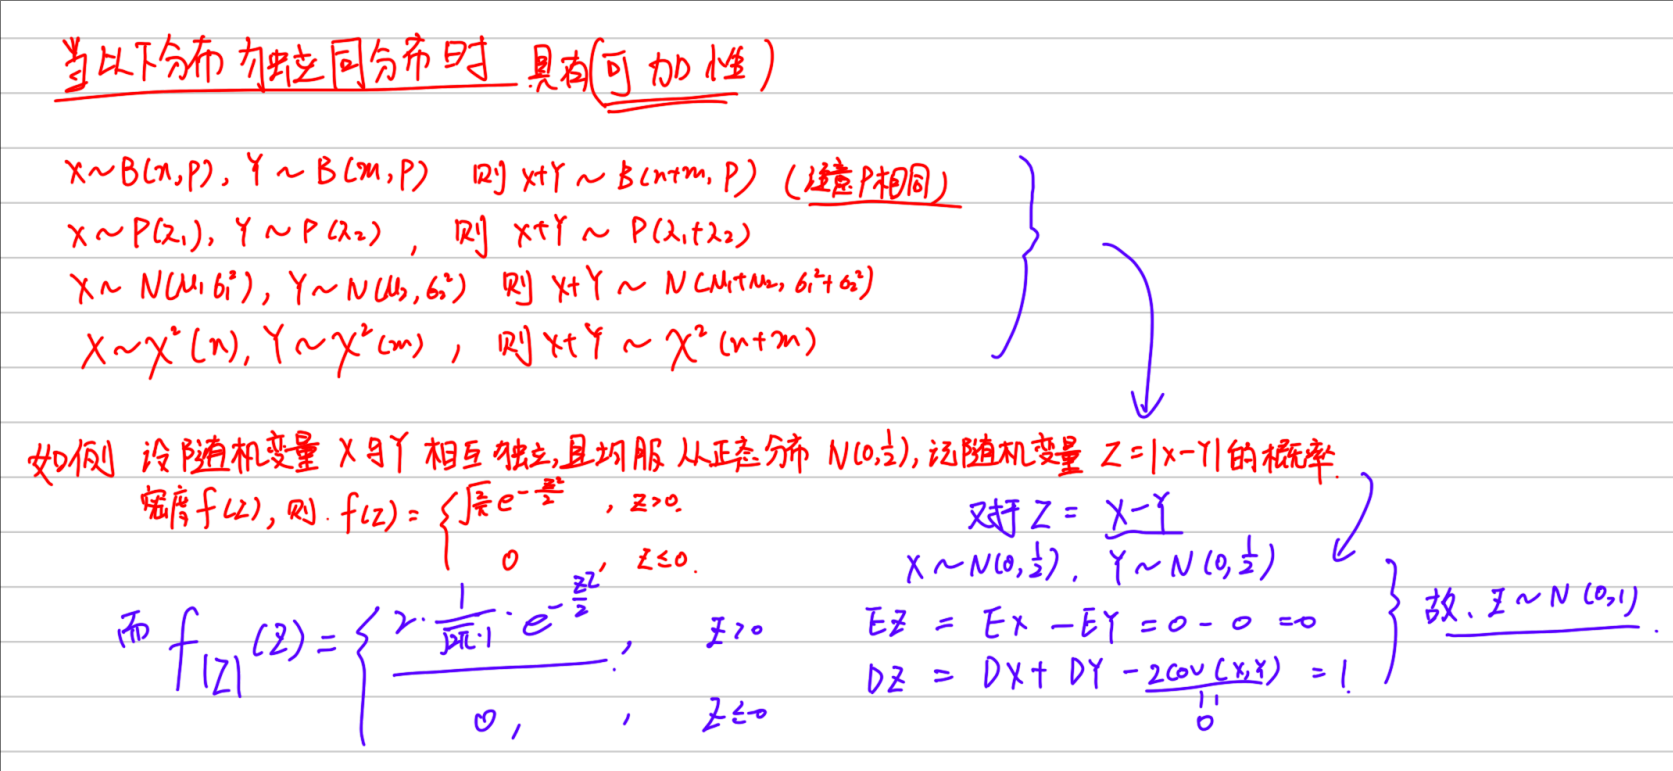 当以下分布为独立同分布时 具有(可加性)
X~B(n,p), Y~B(m,p) 则 X+Y~B(n+m,p) (注意P相同)
X~P(λ₁), Y~P(λ₂), 则 X+Y~P(λ₁+λ₂)
X~N(μ₁,σ₁²), Y~N(μ₂,σ₂²) 则 X+Y~N(μ₁+μ₂, σ₁²+σ₂²)
X~χ²(n), Y~χ²(m), 则 X+Y~χ²(n+m)
如例 设随机变量 X与Y 相互独立,且均服从正态分布 N(0,1/2), 记随机变量 Z=|X-Y|的概率
密度f(z), 则. f(z) = { √(2/π) e^(-z²/2), z>0.
0, z≤0.
对于 Z = X-Y
X~N(0,1/2). Y~N(0,1/2)
EZ = EX - EY = 0 - 0 = 0
DZ = DX + DY - 2cov(X,Y) = 1.
0
故. Z~N(0,1).
而 f_|Z|(z) = { 2·1/(√2π·1)·e^(-z²/2), z>0
0, , z≤0